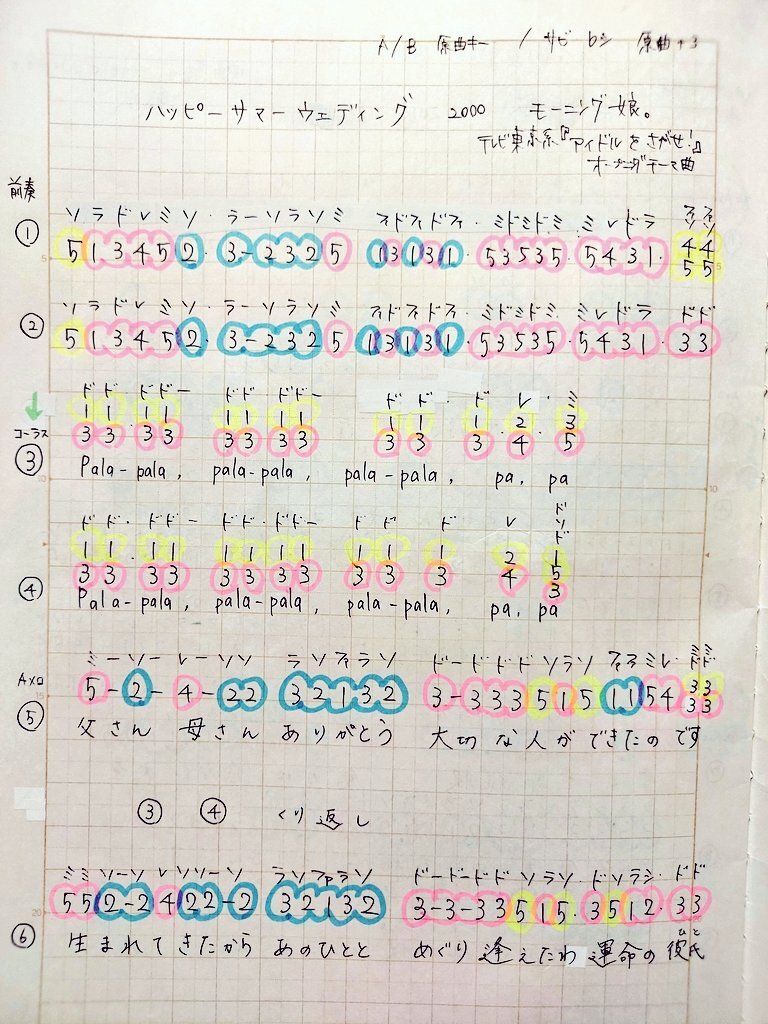 A/B 原曲キー / サビ bシ 原曲+3
ハッピーサマーウェディング 2000 モーニング娘。
テレビ東京系『アイドルをさがせ!』
オープニングテーマ曲
前奏
ソラドレミソ・ラーソラソミ ファドファドファ・ミドミドミ ミレドラ ファファ
ソソ
① 51345②・3-2325 13131・53535・5431・44
55
ソラドレミソ・ラーソラソミ ファドファドファ・ミドミドミ ミレドラ ドド
② 513452・3-2325 13131・53535・5431・33
ドド・ドドー ドド・ドドー ドド・ド・レ・ミ
11・11 11・11 11・1・2・3
コーラス 33・33 33・33 33・3・4・5
③ Pala-pala, pala-pala, pala-pala, pa, pa
ド
ソ
ドド・ドドー ドド・ドドー ドド ド レ ド
11・11 11・11 11 1 2 1
33 33 33 33 33 3 4 5
3
④ Pala-pala, pala-pala, pala-pala, pa, pa
Aメロ ミーソーレーソソ ラソファラソ ドードドドソラソファファミレ ミミ
ドド
5-2-4-22 32132 3-333515 1154 33
33
⑤ 父さん 母さん ありがとう 大切な人ができたのです
③ ④ くり返し
ミミソーソレソソーソ ラソファラソ ドードードドソラソ・ドソラシ・ドド
552-2422-2 32132 3-3-33515・3512・33
⑥ 生まれてきたから あのひとと めぐり逢えたわ 運命の彼氏
ひと